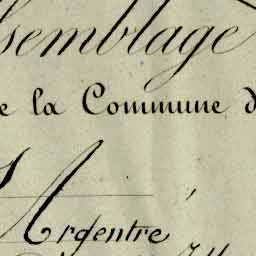 semblage
e la Commune d
Argentré